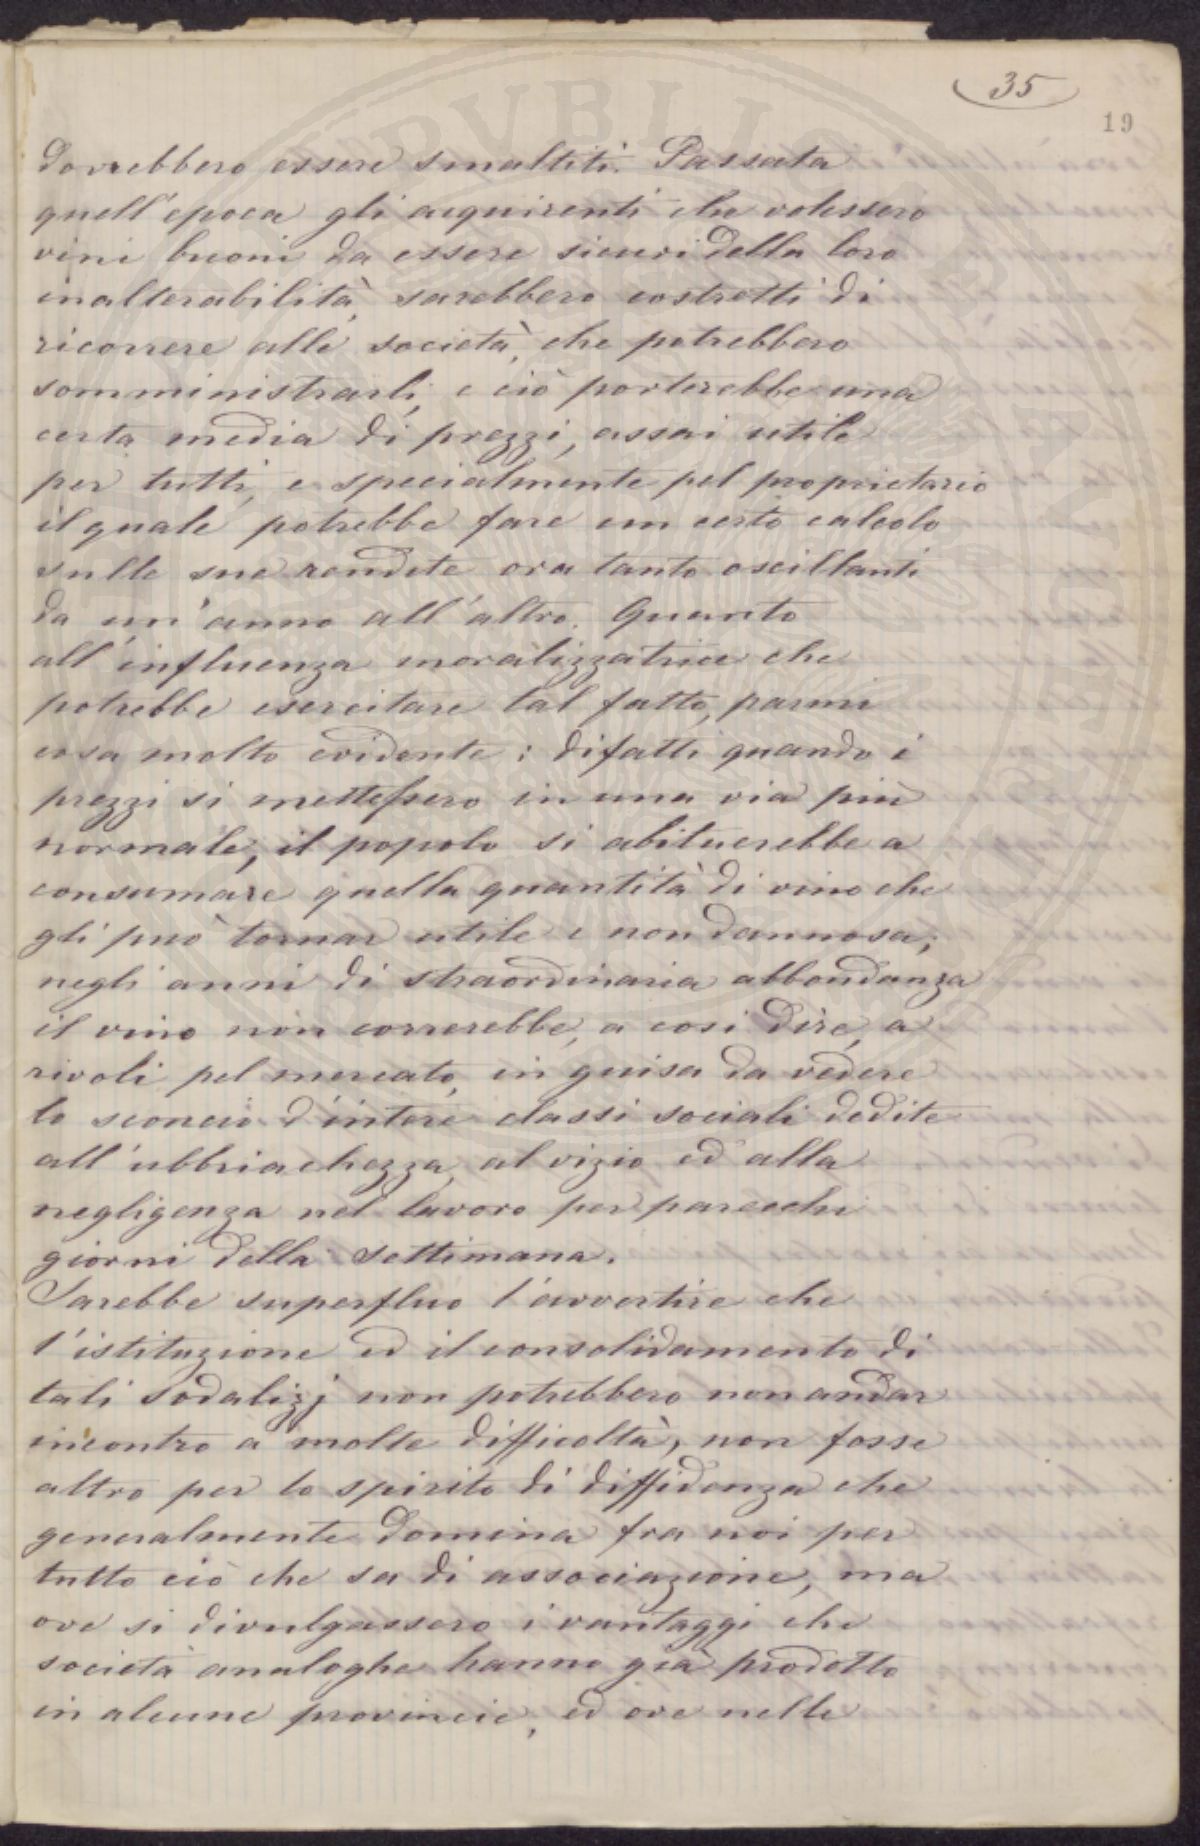 35
19
dovrebbero essere smaltiti. Passata
quell'epoca gli acquirenti che volessero
vini buoni da essere sicuri della loro
inalterabilità, sarebbero costretti di
ricorrere alle società, che potrebbero
somministrarli, e ciò porterebbe una
certa media di prezzi, assai utile
per tutti, e specialmente pel proprietario
il quale potrebbe fare un certo calcolo
sulle sue rendite ora tanto oscillanti
da un'anno all'altro. Quanto
all'influenza moralizzatrice che
potrebbe esercitare tal fatto, parmi
cosa molto evidente: difatti quando i
prezzi si mettessero in una via più
normale, il popolo si abituerebbe a
consumare quella quantità di vino che
gli può tornar utile e non dannosa;
negli anni di straordinaria abbondanza
il vino non correrebbe, a così dire, a
rivoli pel mercato, in guisa da vedere
lo sconcio d'intere classi sociali dedite
all'ubbriachezza, al vizio ed alla
negligenza nel lavoro per parecchi
giorni della settimana.
Sarebbe superfluo l'avvertire che
l'istituzione ed il consolidamento di
tali sodalizj non potrebbero non andar
incontro a molte difficoltà, non fosse
altro per lo spirito di diffidenza che
generalmente domina fra noi per
tutto ciò che sa di associazione, ma
ove si divulgassero i vantaggi che
società analoghe hanno già prodotto
in alcune provincie, ed ove nelle